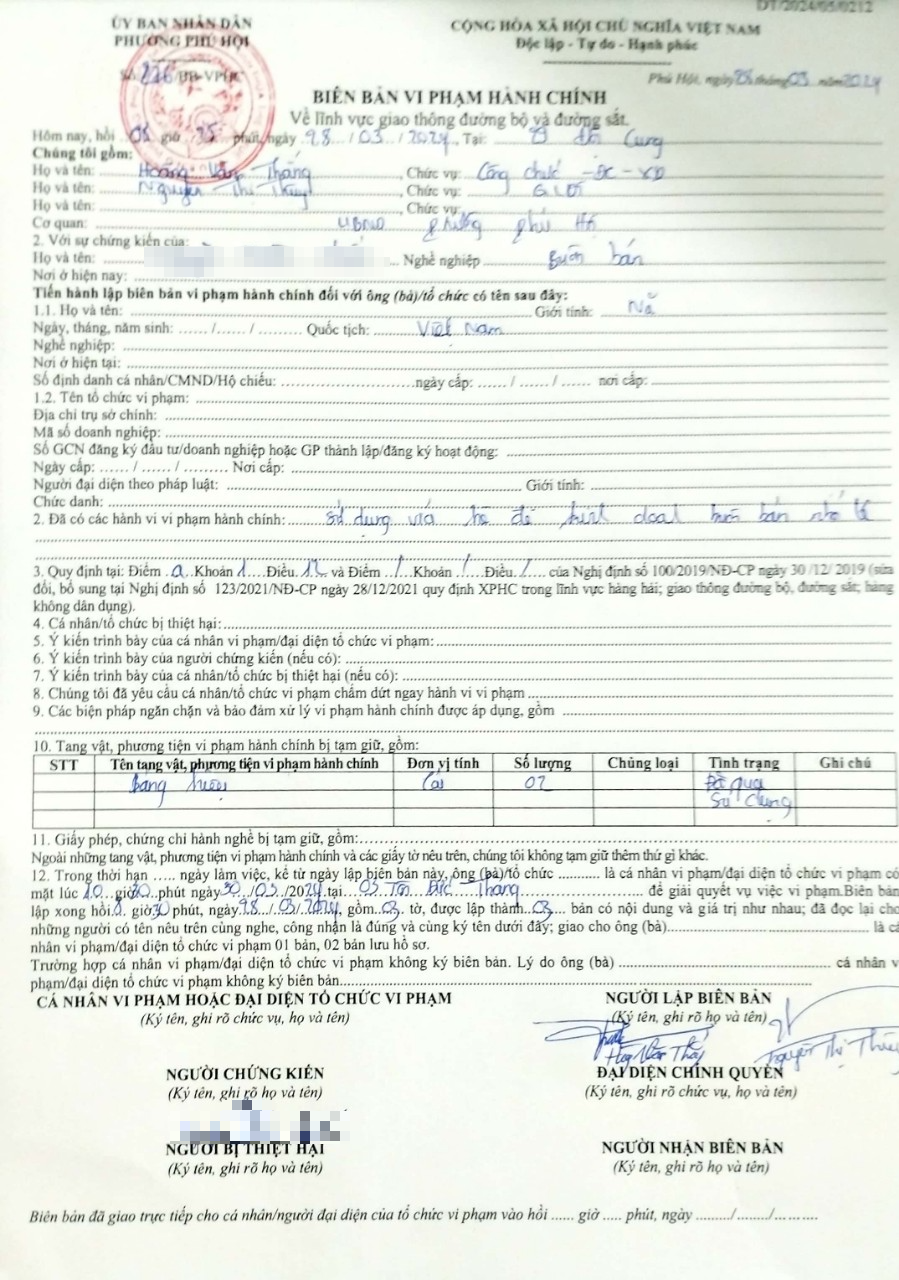 DT/2024/05/0212
ỦY BAN NHÂN DÂN
PHƯỜNG PHÚ HỘI
CỘNG HÒA XÃ HỘI CHỦ NGHĨA VIỆT NAM
Độc lập - Tự do - Hạnh phúc
Số 226/BB-VPHC
Phú Hội, ngày 28 tháng 03 năm 2024
BIÊN BẢN VI PHẠM HÀNH CHÍNH
Về lĩnh vực giao thông đường bộ và đường sắt.
Hôm nay, hồi 08 giờ phút, ngày 28 / 03 / 2024, Tại: Đội Cung
Chúng tôi gồm:
Họ và tên: Hoàng Văn Thắng, Chức vụ: Công chức - ĐC - XD
Họ và tên: Nguyễn Thị Thúy, Chức vụ:
Họ và tên: , Chức vụ:
Cơ quan: UBND phường phú Hội
2. Với sự chứng kiến của:
Họ và tên: Nghề nghiệp Buôn bán
Nơi ở hiện nay:
Tiến hành lập biên bản vi phạm hành chính đối với ông (bà)/tổ chức có tên sau đây:
1.1. Họ và tên: Giới tính: Nữ
Ngày, tháng, năm sinh: ...... /...... / ........ Quốc tịch: Việt Nam
Nghề nghiệp:
Nơi ở hiện tại:
Số định danh cá nhân/CMND/Hộ chiếu: ngày cấp: ...... / ...... / ...... nơi cấp:
1.2. Tên tổ chức vi phạm:
Địa chỉ trụ sở chính:
Mã số doanh nghiệp:
Số GCN đăng ký đầu tư/doanh nghiệp hoặc GP thành lập/đăng ký hoạt động:
Ngày cấp: ...... / ...... / ........ Nơi cấp:
Người đại diện theo pháp luật: Giới tính:
Chức danh:
2. Đã có các hành vi vi phạm hành chính: Sử dụng vỉa hè để kinh doanh buôn bán nhỏ lẻ
3. Quy định tại: Điểm a Khoản 1 Điều 12 và Điểm / Khoản / Điều / của Nghị định số 100/2019/NĐ-CP ngày 30 /12/ 2019 (sửa
đổi, bổ sung tại Nghị định số 123/2021/NĐ-CP ngày 28/12/2021 quy định XPHC trong lĩnh vực hàng hải; giao thông đường bộ, đường sắt; hàng
không dân dụng).
4. Cá nhân/tổ chức bị thiệt hại:
5. Ý kiến trình bày của cá nhân vi phạm/đại diện tổ chức vi phạm:
6. Ý kiến trình bày của người chứng kiến (nếu có):
7. Ý kiến trình bày của cá nhân/tổ chức bị thiệt hại (nếu có):
8. Chúng tôi đã yêu cầu cá nhân/tổ chức vi phạm chấm dứt ngay hành vi vi phạm
9. Các biện pháp ngăn chặn và bảo đảm xử lý vi phạm hành chính được áp dụng, gồm
10. Tang vật, phương tiện vi phạm hành chính bị tạm giữ, gồm:
STT Tên tang vật, phương tiện vi phạm hành chính Đơn vị tính Số lượng Chủng loại Tình trạng Ghi chú
bảng hiệu Cái 02 Đã qua
Sử dụng
11. Giấy phép, chứng chỉ hành nghề bị tạm giữ, gồm:
Ngoài những tang vật, phương tiện vi phạm hành chính và các giấy tờ nêu trên, chúng tôi không tạm giữ thêm thứ gì khác.
12. Trong thời hạn ..... ngày làm việc, kể từ ngày lập biên bản này, ông (bà)/tổ chức ........ là cá nhân vi phạm/đại diện tổ chức vi phạm có
mặt lúc 10 giờ 30 phút ngày 30 /03 /2024 tại 03 Tôn Đức Thắng để giải quyết vụ việc vi phạm.Biên bản
lập xong hồi 8 giờ 30 phút, ngày 28 / 03 / 2024, gồm 03 tờ, được lập thành 03 bản có nội dung và giá trị như nhau; đã đọc lại cho
những người có tên nêu trên cùng nghe, công nhận là đúng và cùng ký tên dưới đây; giao cho ông (bà) là cá
nhân vi phạm/đại diện tổ chức vi phạm 01 bản, 02 bản lưu hồ sơ.
Trường hợp cá nhân vi phạm/đại diện tổ chức vi phạm không ký biên bản. Lý do ông (bà) cá nhân v
phạm/đại diện tổ chức vi phạm không ký biên bản
CÁ NHÂN VI PHẠM HOẶC ĐẠI DIỆN TỔ CHỨC VI PHẠM
(Ký tên, ghi rõ chức vụ, họ và tên)
NGƯỜI LẬP BIÊN BẢN
(Ký tên, ghi rõ họ và tên)
Hoàng Văn Thắng
Nguyễn Thị Thúy
NGƯỜI CHỨNG KIẾN
(Ký tên, ghi rõ họ và tên)
ĐẠI DIỆN CHÍNH QUYỀN
(Ký tên, ghi rõ chức vụ, họ và tên)
NGƯỜI BỊ THIỆT HẠI
(Ký tên, ghi rõ họ và tên)
NGƯỜI NHẬN BIÊN BẢN
(Ký tên, ghi rõ họ và tên)
Biên bản đã giao trực tiếp cho cá nhân/người đại diện của tổ chức vi phạm vào hồi ...... giờ ..... phút, ngày ......../......../...........